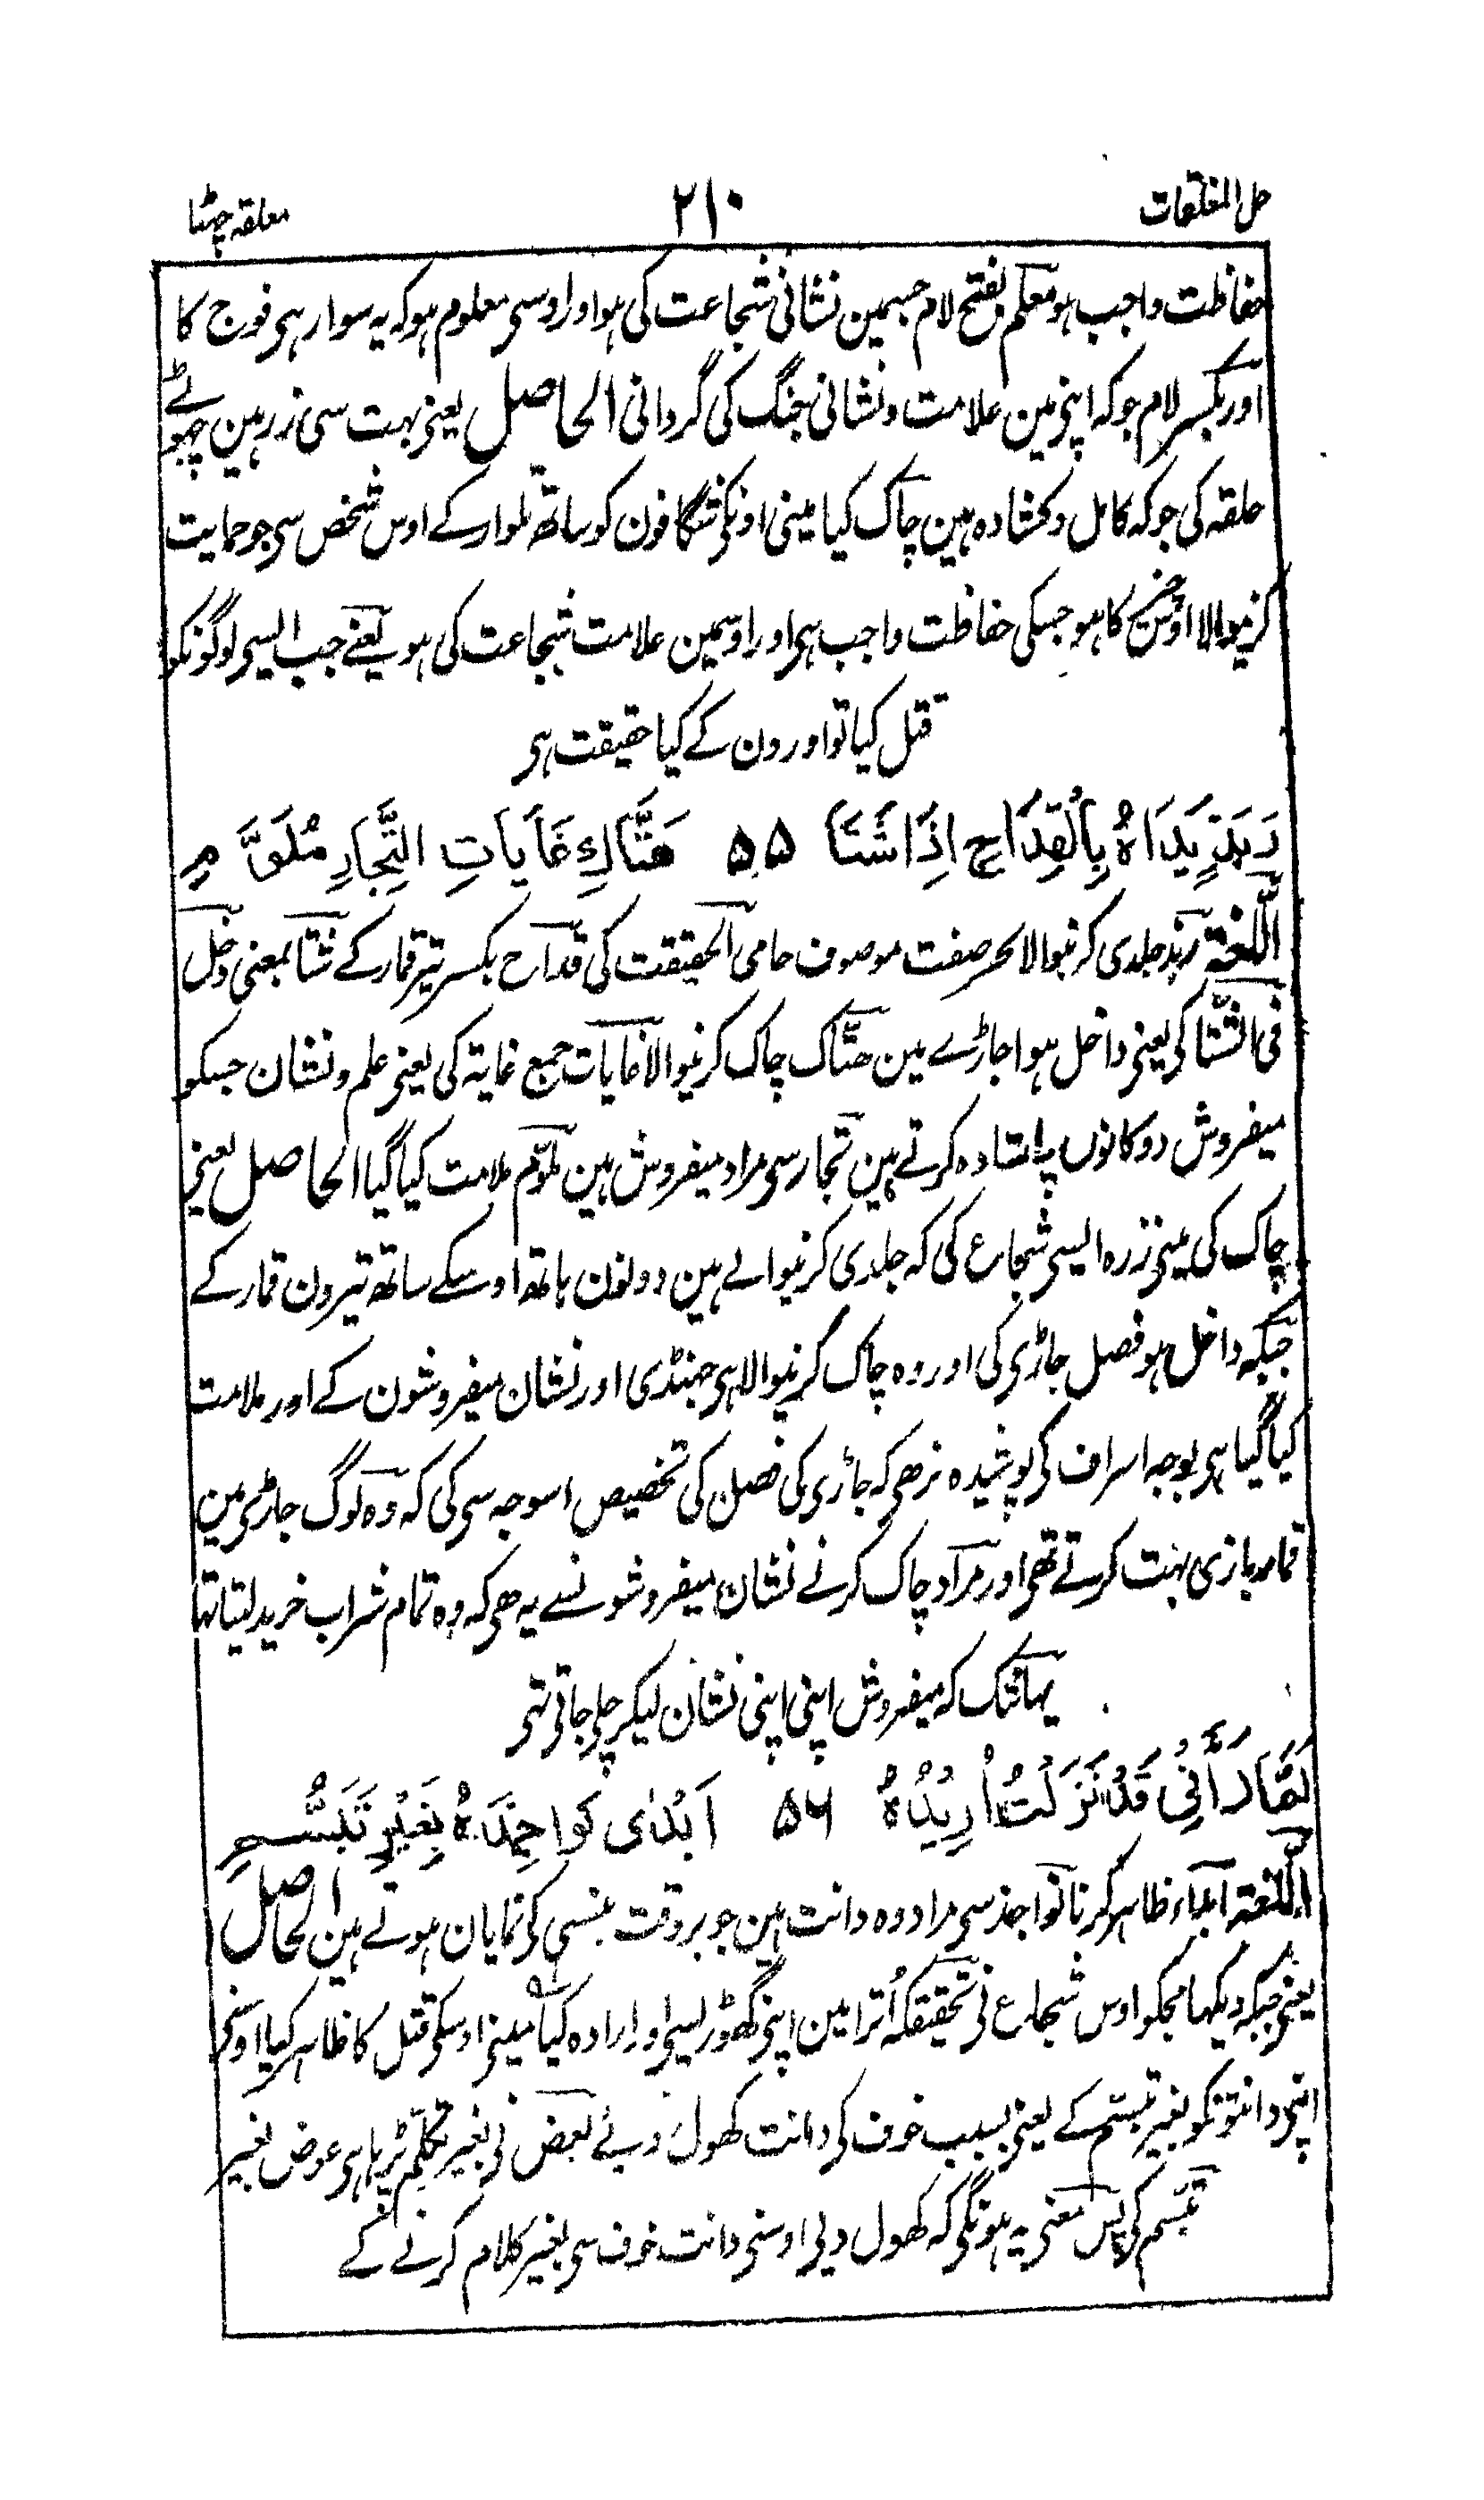 حل المغلقات ۲۱۰ معلقہ چھٹا
حفاظت واجب ہو معلم بفتح لام جسمین نشانی شجاعت کی ہو اور اوسی معلوم ہو کہ یہ سوار ہی فوج کا
اور بکسر لام جو کہ اپنی مین علامت و نشانی جنگ کی گردانی الحاصل یعنی بہت سی زرہین چھوٹے
حلقہ کی جو کہ کامل و کشادہ ہین چاک کیا مینی اونکی شگافون کو ساتھ تلوار کے اوس شخص سی جو حمایت
کرنیوالا اوس کا ہو جسکی حفاظت واجب ہی اور اوسمین علامت شجاعت کی ہو یعنے جب ایسی لوگونکو
قتل کیا تو اورون کے کیا حقیقت ہی
رَبِذٍ يَدَاهُ بِالْقِدَاحِ اِذَا شَتَا ۵۵ هَتَّاكِ غَايَاتِ التِّجَارِ مُلَوَّمٍ
اللغۃ ربذ جلدی کرنیوالا بجر صفت موصوف حامی الحقیقت کی قداح بکسر تیر قمار کے شتا بمعنی دخل
فی الشتا کی یعنی داخل ہوا جاڑے مین ھتاک چاک کرنیوالا غایات جمع غایۃ کی یعنی علم و نشان جسکو
میفروش دوکانوں پر استادہ کرتے ہین تجار سی مراد میفروش ہین ملوّم ملامت کیا گیا الحاصل یعنی
چاک کی مینی زرہ ایسی شجاع کی کہ جلدی کرنیوالے ہین دونون ہاتھ اوسکے ساتھ تیرون قمار کے
جبکہ داخل ہو فصل جاڑی کی اور وہ چاک کرنیوالا ہی جھنڈی اور نشان میفروشون کے اور ملامت
کیا گیا ہی بوجہ اسراف کی پوشیدہ نرھی کہ جاڑی کی فصل کی تخصیص اسوجہ سی کی کہ وہ لوگ جاڑی مین
قمار بازی بہت کرتے تھی اور مراد چاک کرنے نشان میفروشونسے یہ ھی کہ وہ تمام شراب خرید لیتا تھا
یہانتک کہ میفروش اپنی اپنی نشان لیکر چلی جاتی تھی
لَمَّا رَأَنِيْ قَدْ نَزَلْتُ اُرِيْدُهُ ۵۶ اَبْدٰى نَوَاجِذَهُ بِغَيْرِ تَبَسُّمِ
اللغۃ ابداء ظاہر کرنا نواجذ سی مراد وہ دانت ہین جو بروقت ہنسی کی نمایان ہوتے ہین الحاصل
یعنی جبکہ دیکھا مجکو اوس شجاع نی تحقیقکہ اُترا مین اپنی گھوڑیسی اور ارادہ کیا مینی اوسکی قتل کا ظاہر کیا اوسنی
اپنی دانتونکو بغیر تبسم کے یعنی بسبب خوف کی دانت کھول دیے بعض نی بغیر تکلّم پڑہا ہی عوض بغیر
تبسّم کی پس معنی یہ ہونگی کہ کھول دیی اوسنی دانت خوف سی بغیر کلام کرنے کے